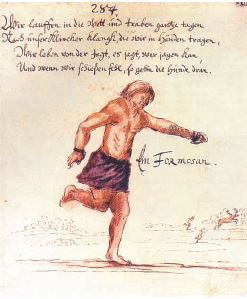 284
Wir lauffen in die Wett und traben gantze tagen
Nach unser Klocker klangk, die wir in Händen tragen,
Wir leben von der Jagt, es jagt, wer jagen kan,
Und wenn wir schießen fehl, so gehn die Hunde dran.
Ein Formosan.